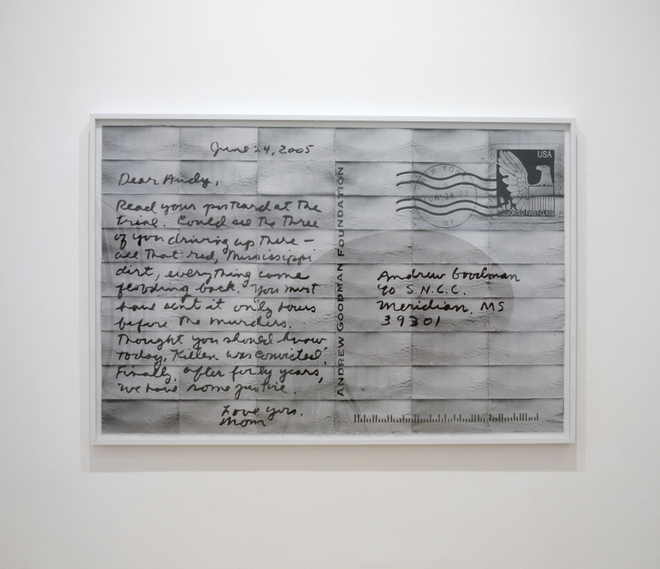 June 24, 2005
Dear Andy,
Read your postcard at the
trial. Could see the three
of you driving up there –
all that red, Mississippi
dirt, everything came
flooding back. You must
have sent it only hours
before the murders.
Thought you should know
today, Killen was convicted.
Finally, after forty years,
we have some justice.
Love you,
Mom
ANDREW GOODMAN FOUNDATION
NEW YORK
NY
USA
Andrew Goodman
c/o S.N.C.C.
Meridian, MS
39301